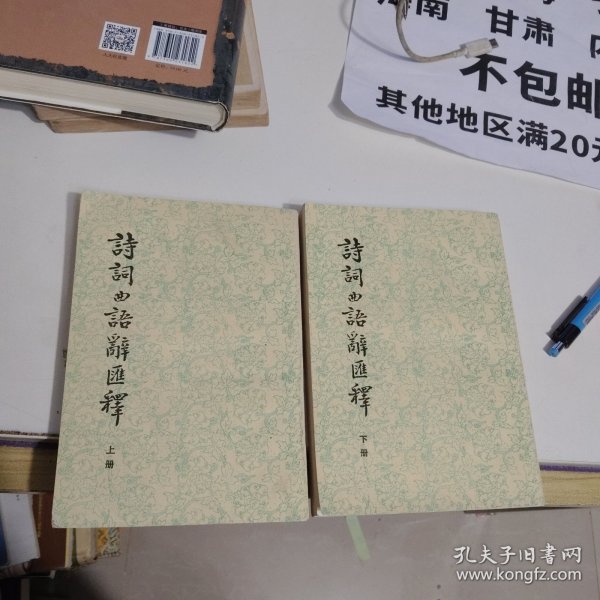 南 甘肃
不包邮
其他地区满20元
詩詞曲語辭匯釋
上册
詩詞曲語辭匯釋
下册
孔夫子旧书网
www.kongfz.com